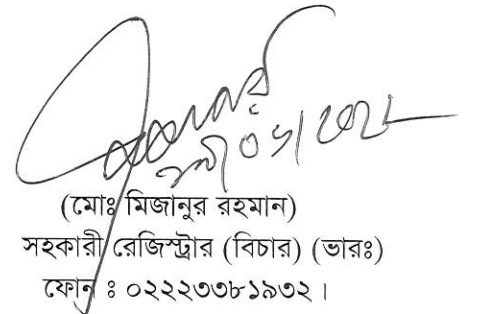 (মোঃ মিজানুর রহমান)
সহকারী রেজিস্ট্রার (বিচার) (ভারঃ)
ফোন : ০২২২৩৩৮১৯৩২।